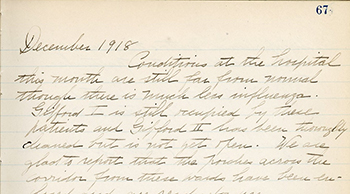 67
December 1918
Conditions at the hospital
this month are still far from normal
though there is much less influenza.
Gifford I is still occupied by these
patients and Gifford II has been thoroughly
cleaned but is not yet open. We are
glad to report that the porches across the
corridor from these wards have been en-